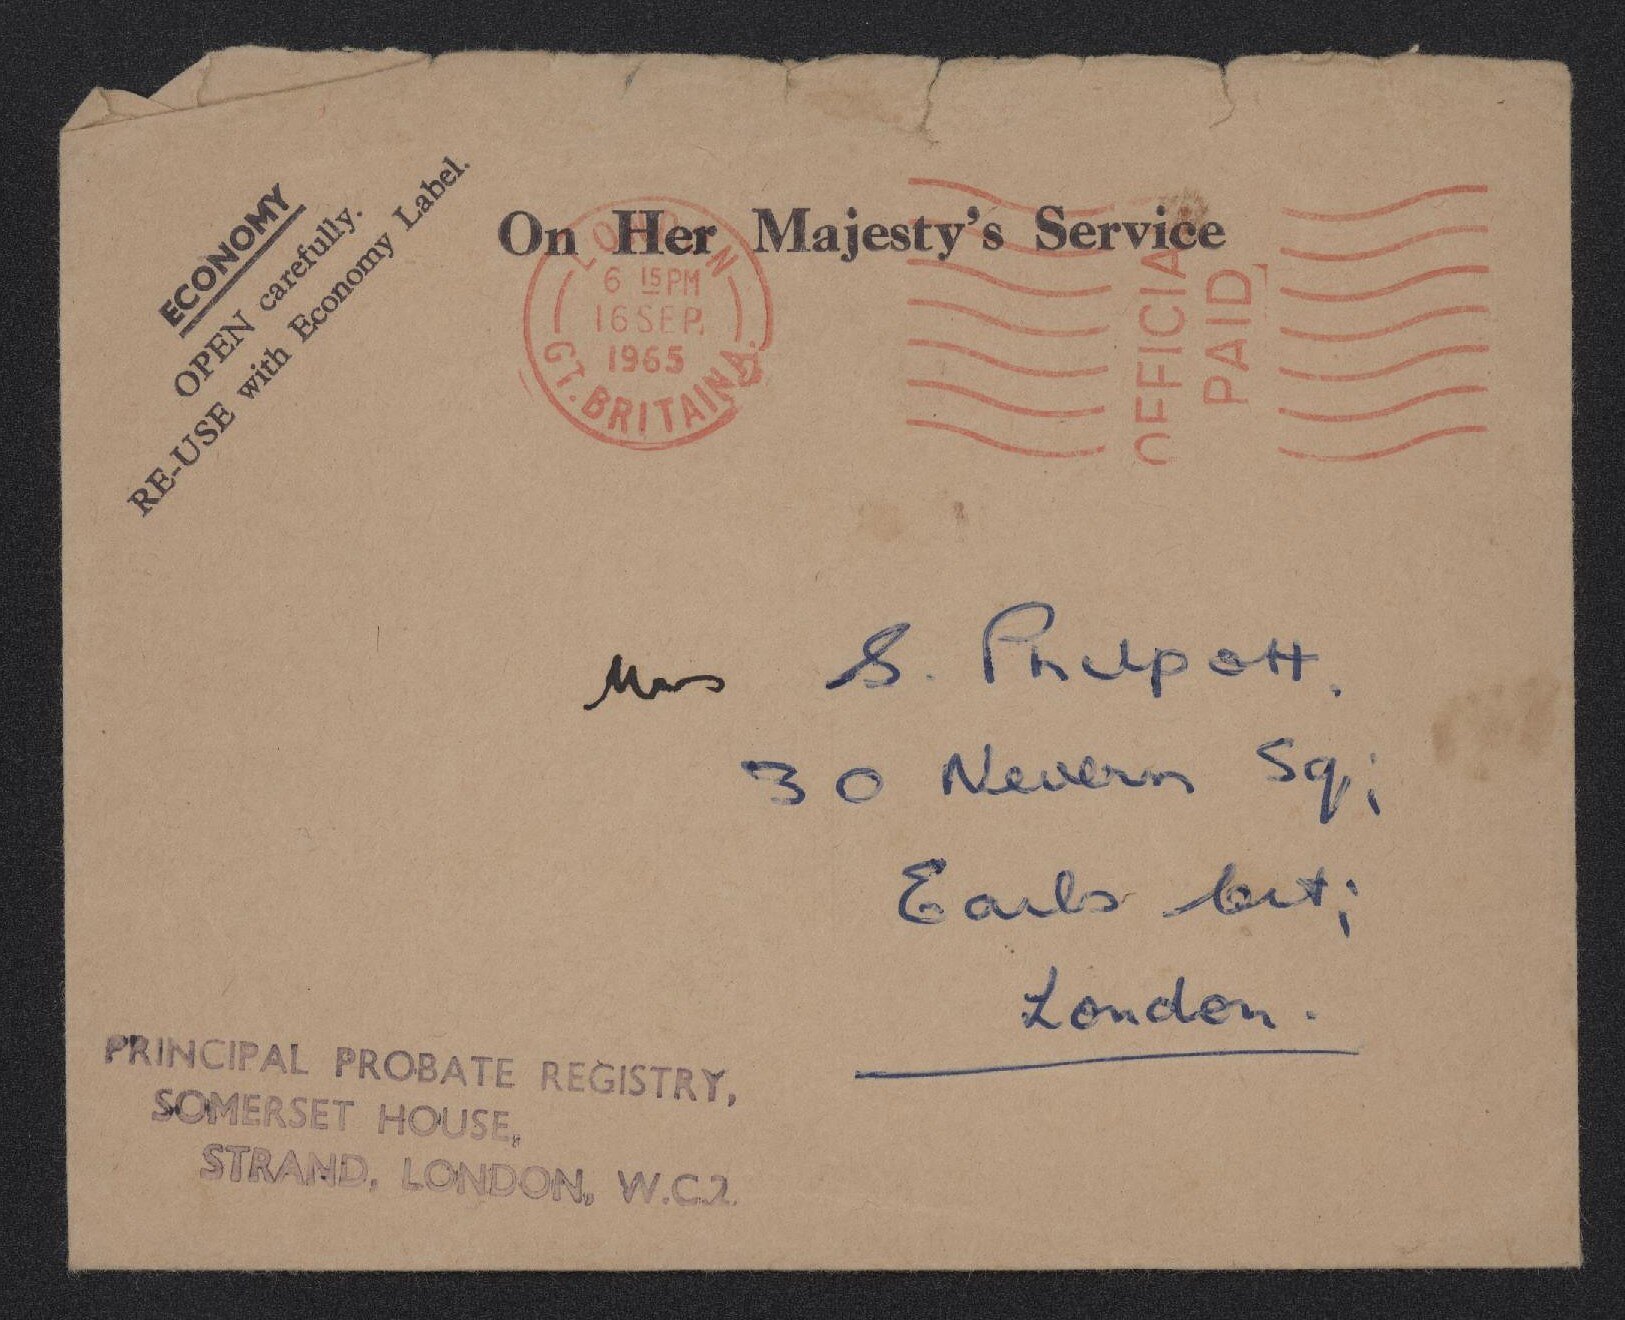 ECONOMY
OPEN carefully.
RE-USE with Economy Label.
On Her Majesty's Service
LONDON
6 15 PM
16 SEP.
1965
GT. BRITAIN
OFFICIAL
PAID
Mrs S. Philpott.
30 Nevern Sq;
Earls Crt;
London.
PRINCIPAL PROBATE REGISTRY,
SOMERSET HOUSE,
STRAND, LONDON, W.C.2.